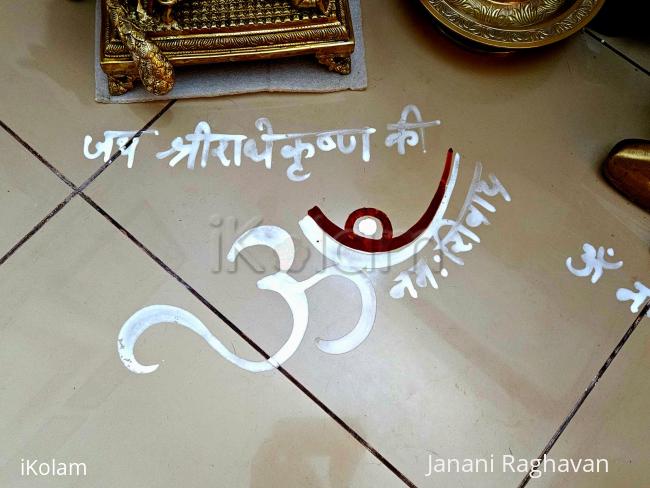 जय श्रीराधे कृष्ण की
ॐ
नमः शिवाय
ॐ
iKolam
iKolam
Janani Raghavan